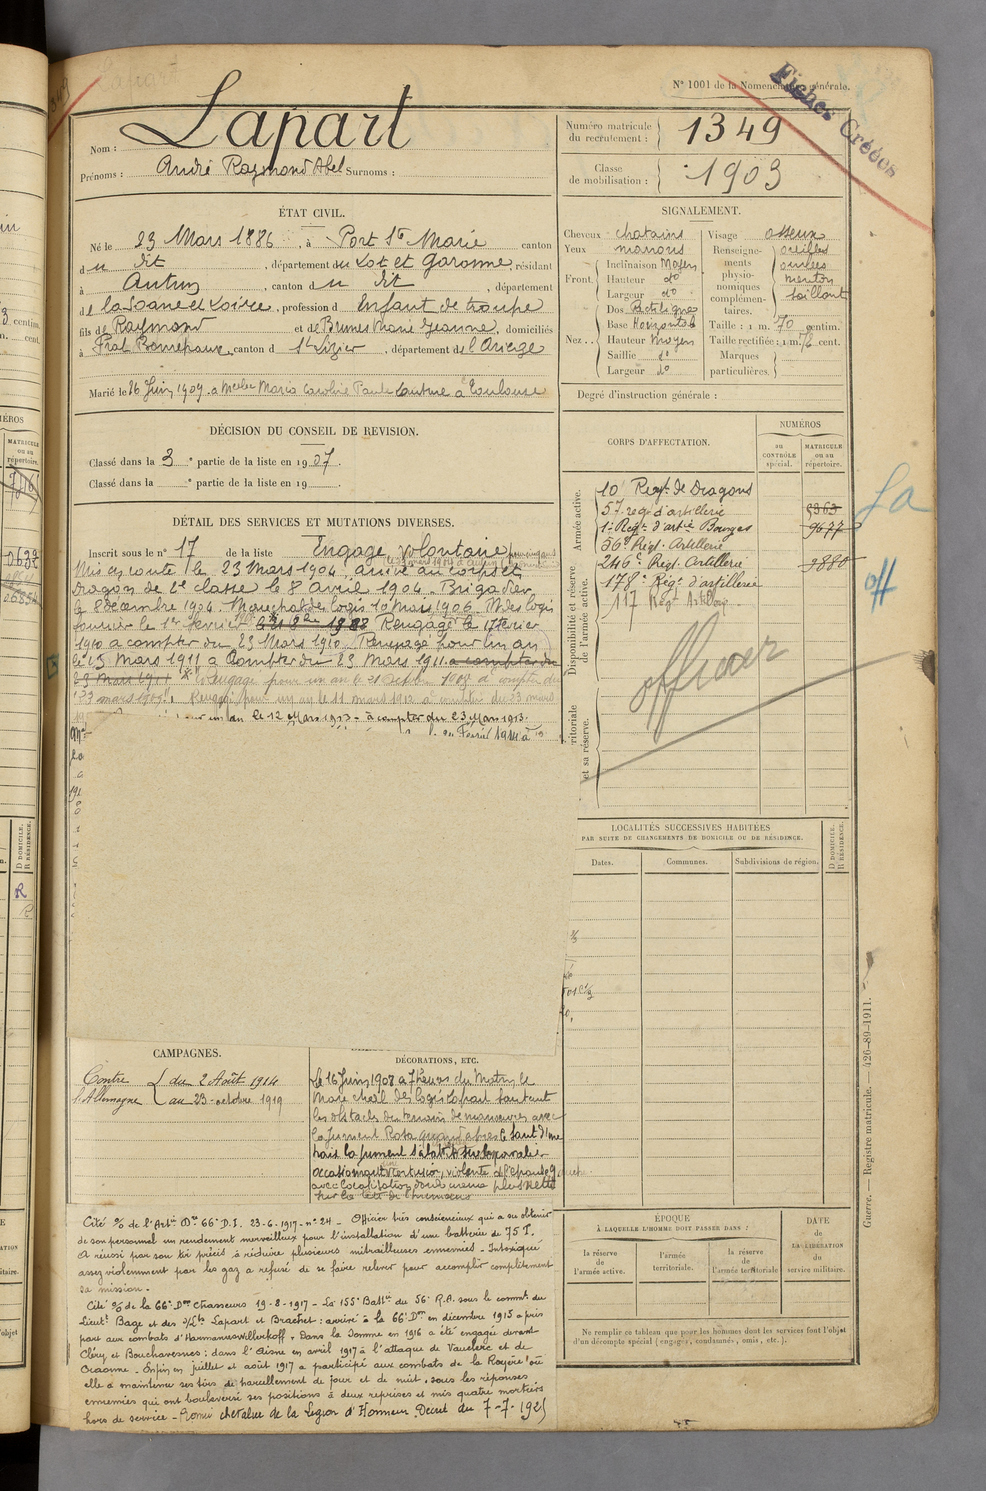 N° 1001 de la Nomenclature générale.
Fiches Créées
Nom : Lapart
Prénoms : André Raymond Abel Surnoms :
Numéro matricule du recrutement : 1349
Classe de mobilisation : 1903
ÉTAT CIVIL.
Né le 23 Mars 1886, à Port Ste Marie canton
du dit, département du Lot et Garonne, résidant
à Autun, canton du dit, département
de la Saone et Loire, profession d'Enfant de troupe
fils de Raymond et de Brunes Marie Jeanne, domiciliés
à Prat Bonrepaux, canton d St Lizier, département de l'Ariège
Marié le 26 Juin 1909 à Melle Maria Caroline Paule à Toulouse
SIGNALEMENT.
Cheveux chatains
Yeux marrons
Front. Inclinaison Moyen
Hauteur do
Largeur do
Nez .. Dos Rectiligne
Base Horizontal
Hauteur Moyen
Saillie do
Largeur do
Visage osseux
Renseignements physionomiques complémentaires. oreilles
ourlées
menton
saillant
Taille : 1 m. 70 centim.
Taille rectifiée : 1 m. 76 cent.
Marques particulières.
Degré d'instruction générale :
DÉCISION DU CONSEIL DE REVISION.
Classé dans la 3e partie de la liste en 1907.
Classé dans la e partie de la liste en 19
CORPS D'AFFECTATION.
NUMÉROS
au CONTRÔLE spécial.
MATRICULE ou au répertoire.
Armée active.
Disponibilité et réserve de l'armée active.
10e Régt de Dragons
57. reg. d'artillerie 5363
1er Régt d'artie Bourges 9677
56e Régt Artillerie
246e Régt Artillerie 9880
178e Régt d'artillerie
117 Régt Artillerie
officier
La
off
DÉTAIL DES SERVICES ET MUTATIONS DIVERSES.
Inscrit sous le n° 17 de la liste Engagé volontaire
Mis en route le 23 Mars 1904, arrivé au corps et
dragon de 2e classe le 8 Avril 1904. Brigadier
le 8 décembre 1904. Marechal des logis 10 Mars 1906. M des logis
fourrier le 1er février Rengagé le 17 février
1910 à compter du 23 Mars 1910. Rengagé pour un an
le 15 Mars 1911 à compter du 23 Mars 1911. a compter du
23 Mars 1911 Rengagé pour un an le 21 Septb. 1908 à compter du
23 mars 1909. Rengagé pour un an le 11 mars 1912 à compter du 23 mars
un an le 12 Mars 1913 - à compter du 23 Mars 1913.
Février 1914 à
territoriale et sa réserve.
LOCALITÉS SUCCESSIVES HABITÉES
PAR SUITE DE CHANGEMENTS DE DOMICILE OU DE RÉSIDENCE.
Dates.
Communes.
Subdivisions de région.
D DOMICILE.
R RÉSIDENCE.
CAMPAGNES.
Contre l'Allemagne du 2 Août 1914
au 23 octobre 1919
DÉCORATIONS, ETC.
Le 16 Juin 1908 à 7 heures du Matin le
Maréchal des logis Lapart sautant
les obstacles du terrain de manœuvres avec
la jument Rosa
mais la jument
occasionnant contusion violente de l'épaule gauche
avec localisation douloureuse plus nette
sur la tête de l'humérus
Cité % de l'Artie Don 66e D.I. 23-6-1917 - n° 24 - Officier très consciencieux qui a su obtenir
de son personnel un rendement merveilleux pour l'installation d'une batterie de 75 T.
A réussi par son tir précis à réduire plusieurs mitrailleuses ennemies - Intoxiqué
assez violemment par les gaz a refusé de se faire relever pour accomplir complètement
sa mission.
Cité % de la 66e Don Chasseurs 19-8-1917 - La 155e Battie du 56e R.A. sous le commt du
Lieutt Bage et des S/Lts Lapart et Brachet : arrivée à la 66e Don en décembre 1915 a pris
part aux combats d'Harmannswillerkoff, Dans la Somme en 1916 a été engagée devant
Cléry et Bouchavesnes : dans l'Aisne en avril 1917 à l'attaque de Vauclerc et de
Craonne - Enfin en juillet et août 1917 a participé aux combats de la Royère où
elle a maintenu ses tirs de harcellement de jour et de nuit, sous les réponses
ennemies qui ont bouleversé ses positions à deux reprises et mis quatre mortiers
hors de service - Promu chevalier de la Légion d'Honneur Décret du 7-7-1925
ÉPOQUE
À LAQUELLE L'HOMME DOIT PASSER DANS :
la réserve de l'armée active.
l'armée territoriale.
la réserve de l'armée territoriale
DATE
de
LA LIBÉRATION
du
service militaire.
Ne remplir ce tableau que pour les hommes dont les services font l'objet
d'un décompte spécial (engagés, condamnés, omis, etc.).
Guerre. — Registre matricule. — 426-89-1911.